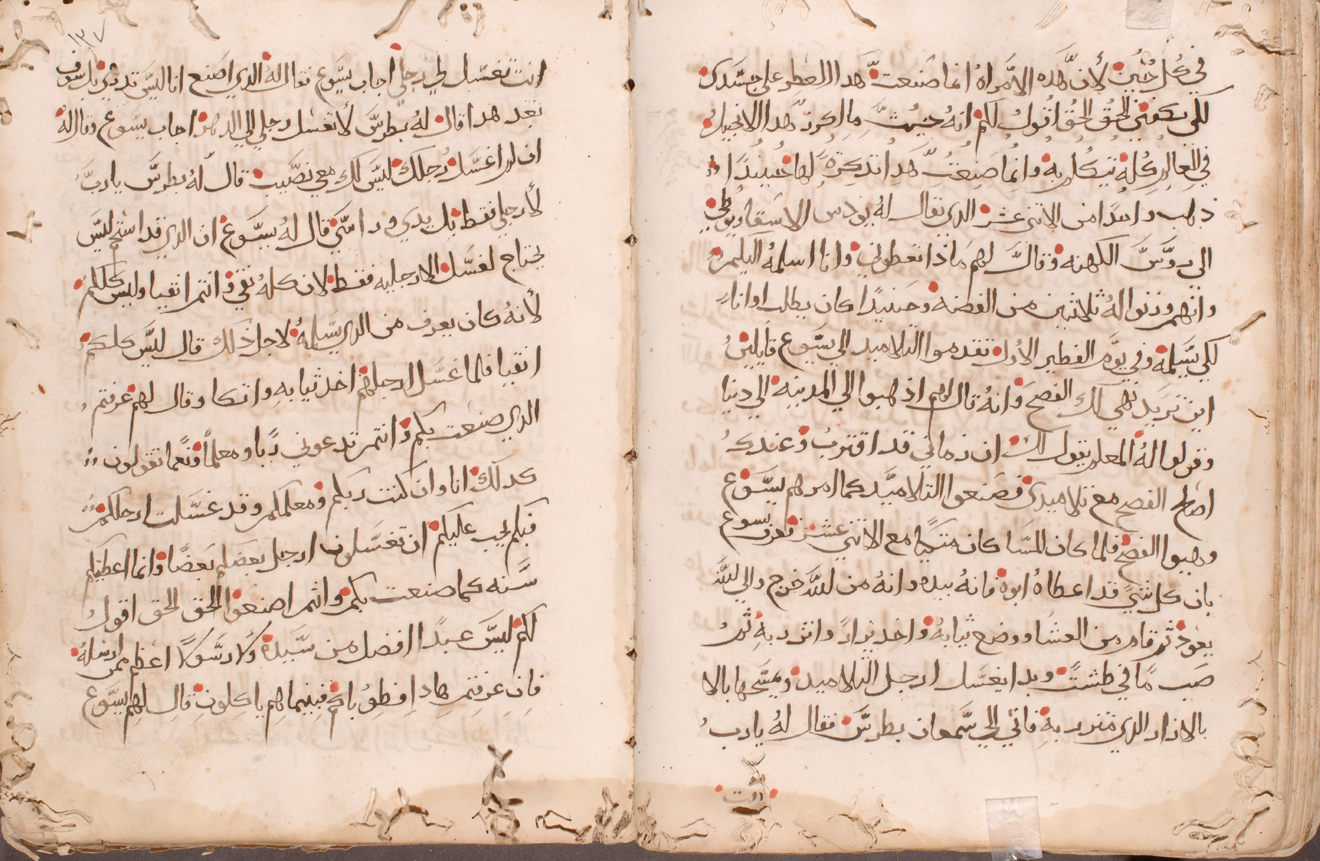 في كل حين لأن هده الامراه انما صنعت هدا العطر على جسدى
لكي تكفننى الحق الحق اقول لكم انه حيت ما اكرز بهدا الانجيل
في العالم كله تيكلم به وانما صنعت هدا تدكرة لها حينيدًا
دهب واحدًا من الاثنى عشر الدى يقال له يودس الاسقاريوطي
الى روس الكهنه وقال لهم ماذا تعطوني وانا اسلمه اليكم
وانهم وزنوا له ثلاثين من الفضه وحينيدًا كان يطلب اوانا
لكي يسلمه وفي يوم الفطير الاول تقدموا التلاميد الى يسوع قايلين
اين تريد نهي لك الفصح وانه قال لهم اذهبوا الي المدينه الي دنيا
وقولوا له المعلم يقول لك ان زماني قد اقترب وعندك
اصلح الفصح مع تلاميدى فصنعوا التلاميد كما امرهم يسوع
وهيوا الفصح فلما كان المسا كان متكيًا مع الاثني عشر فعرف يسوع
بان كل شي قد اعطاه ابوه فانه بيده وانه من الله خرج والي الله
يعود ثم قام من العشا ووضع ثيابه واخد ميزارً واتزر به ثم
صب مًا في طشتً وبدا يغسل ارجل التلاميد ويمسحها بالا
بالازار الدي متزر به فاتي الي سمعان بطرس فقال له يارب
انت
١٣٧
انت تغسل لي رجلي اجاب يسوع فقال له الدي اصنع انا ليس تدري بل سوف
بعد هدا قال له بطرس لا تغسل رجلي الي الدهر اجاب يسوع وقال له
ان لم اغسل رجلك ليس لك معي نصيب قال له بطرس يارب
لا رجلي فقط بل يدي وراسى قال له يسوع ان الدي قد استحم ليس
يحتاج لغسل الا رجليه فقط لان كله نقي وانتم انقيا وليس كلكم
لأنه كان يعرف من الدي يسلمه لاجل ذلك قال ليس كلكم
انقيا فلما غسل ارجلهم اخد ثيابه واتكا وقال لهم عرفتم
الدي صنعت بكم وانتم تدعوني ربًا ومعلمًا فنعما تقولون
كدلك انا وان كنت ربكم ومعلمكم وقد غسلت ارجلكم
فبكم يجب عليكم ان تغسلون ارجل بعضكم بعضًا وانما اعطيتكم
سنه كما صنعت بكم وانتم اصنعوا الحق الحق اقول
لكم ليس عبدًا افضل من سيده ولا رسولا اعظم ممن ارسله
فان عرفتم هادا فطوباكم فبينما هم ياكلون قال لهم يسوع